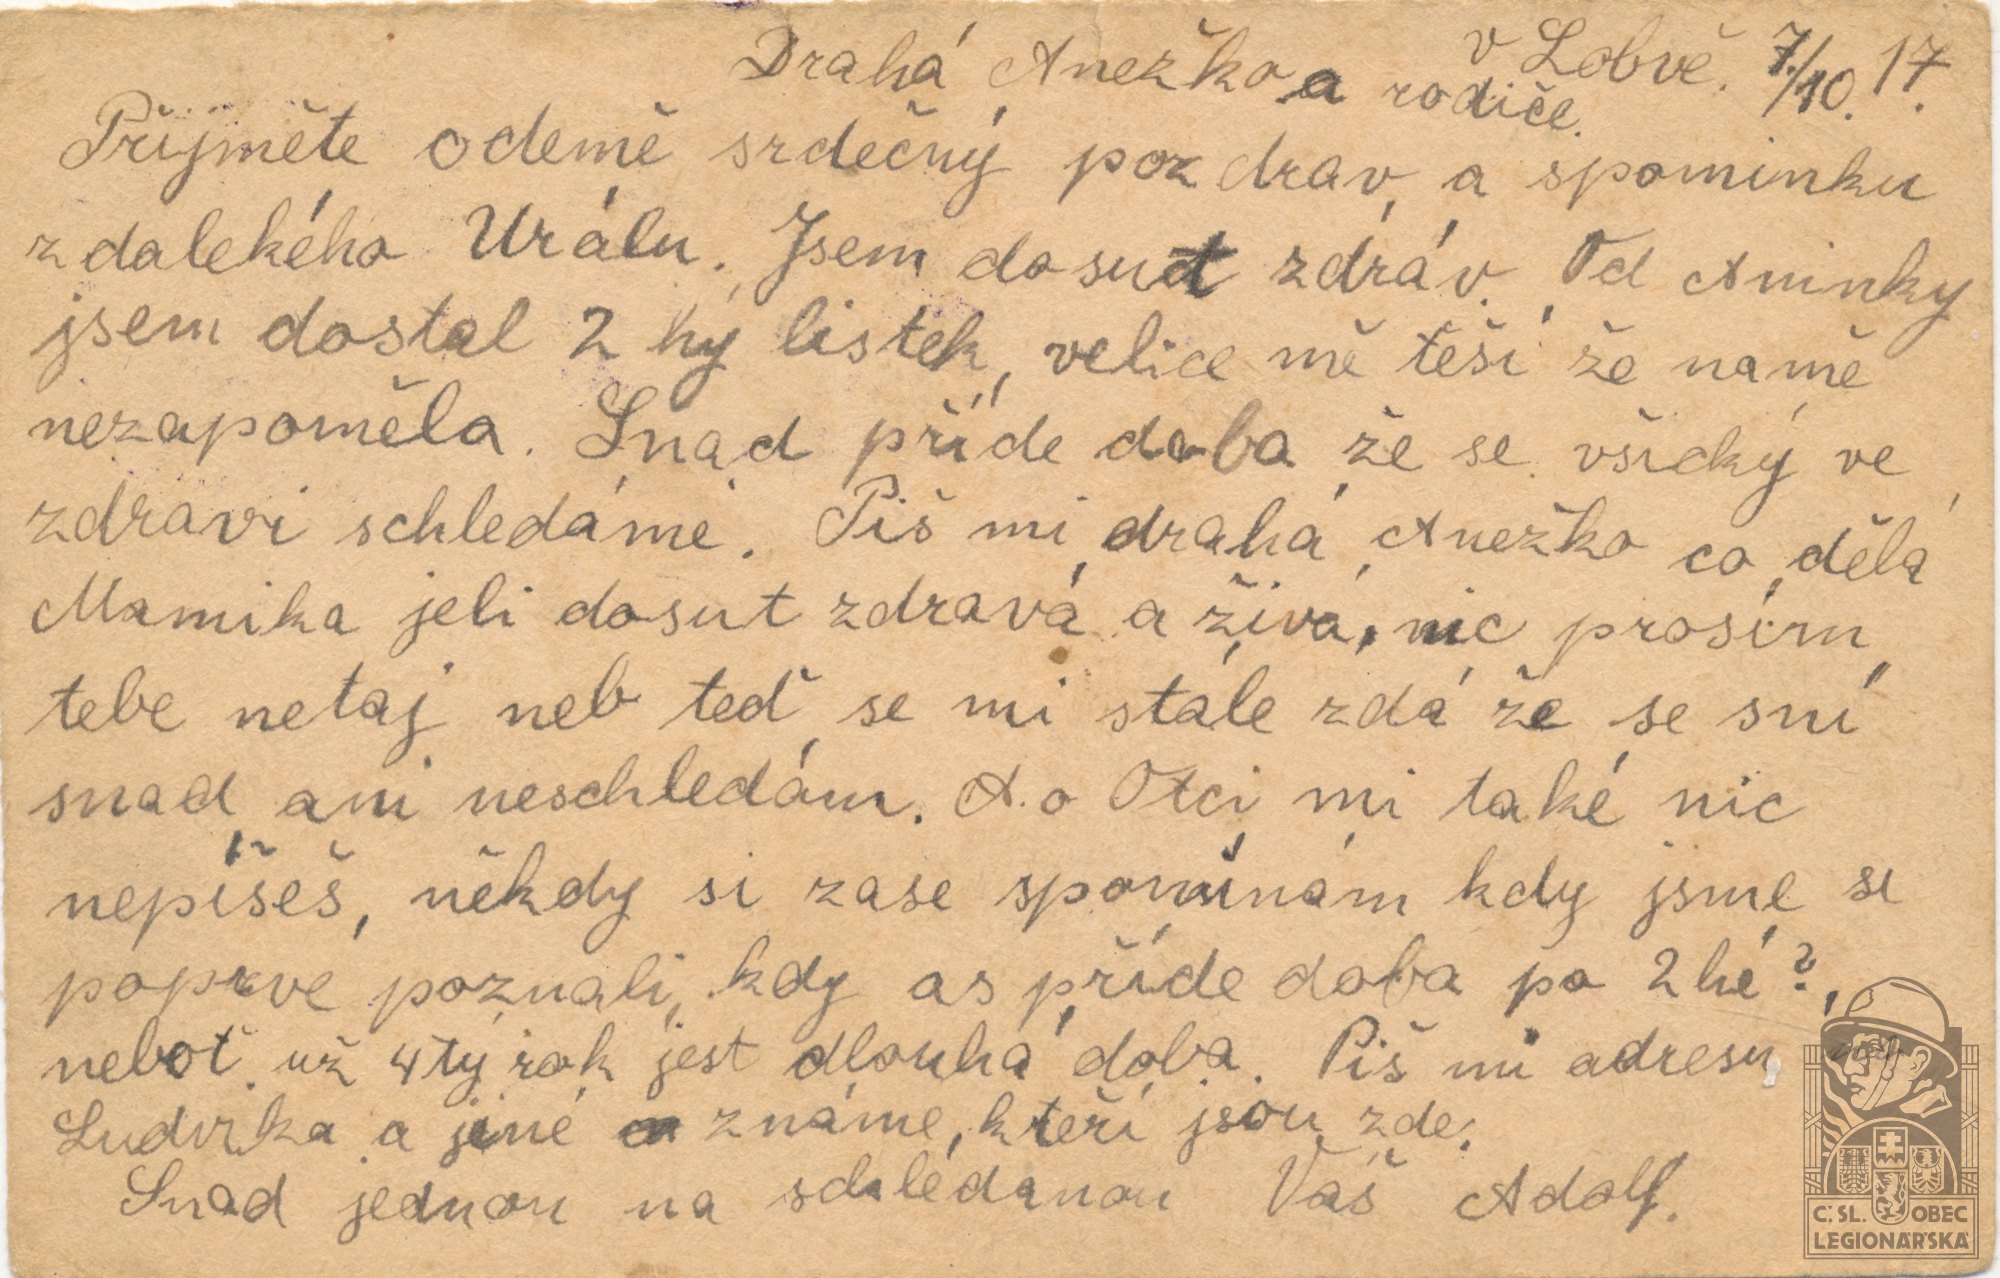 v Lobvě. 7./10. 17.
Drahá Anežko a rodiče.
Přijměte odemě srdečný pozdrav a spominku
z dalekého Urálu. Jsem dosut zdráv. Od Aninky
jsem dostal 2 hý listek, velice mě těší že namě
nezapoměla. Snad příde doba že se všický ve
zdravi schledáme. Piš mi drahá Anežko co dělá
Mamika jeli dosut zdravá a živá, nic prosím
tebe netaj neb teď se mi stále zdá že se sní
snad ani neschledám. A o Otci mi také nic
nepíšeš, někdy si zase spomínám kdy jsme se
poprvé poznali, kdy as příde doba po 2hé?,
neboť už 4tý rok jest dlouhá doba. Piš mi adresu
Ludvika a jiné známe, kteří jsou zde.
Snad jednou na schledanou Váš Adolf.
Č. SL. OBEC
LEGIONÁŘSKÁ